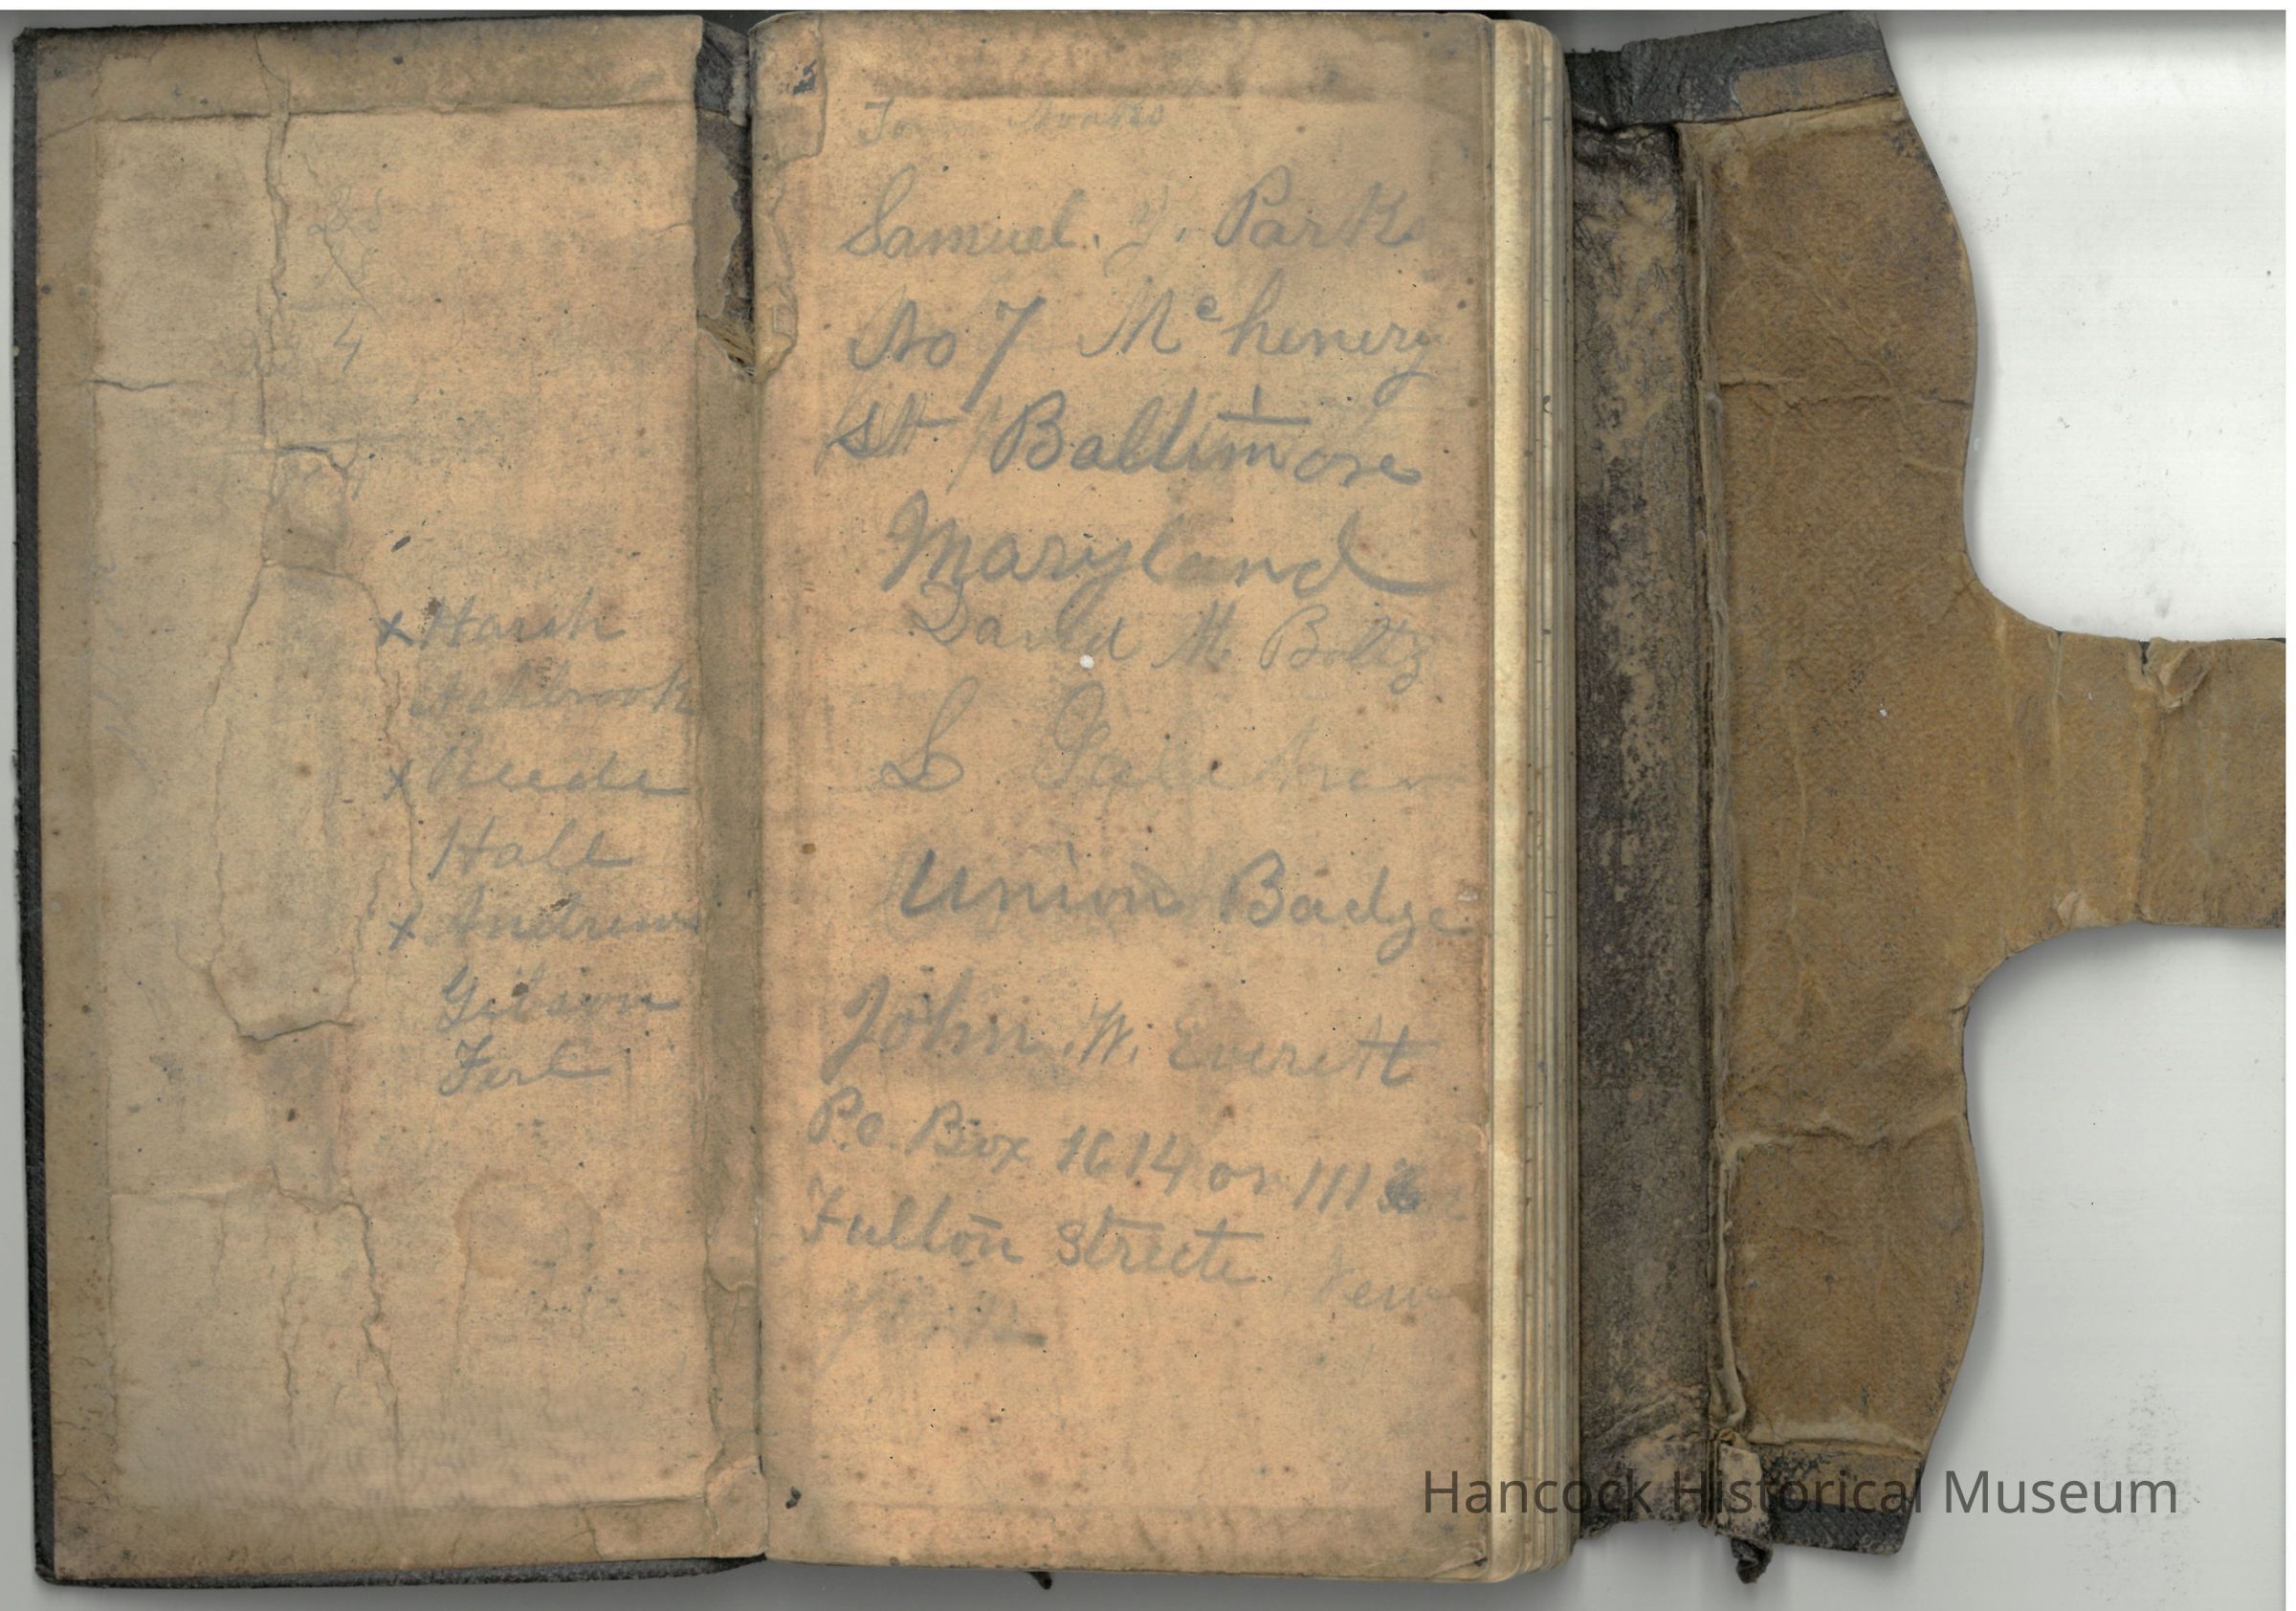 4
x Harsh
Ashbrook
x Reede
Hall
x Andrews
Gibson
Ferl
Samuel. Y. Park
No 7 Mchenery
St Baltimore
Maryland
David H. Boltz
S
Union Badge
John. W. Everett
Po. Box 1614 or 111
Fulton Streete New
York
Hancock Historical Museum